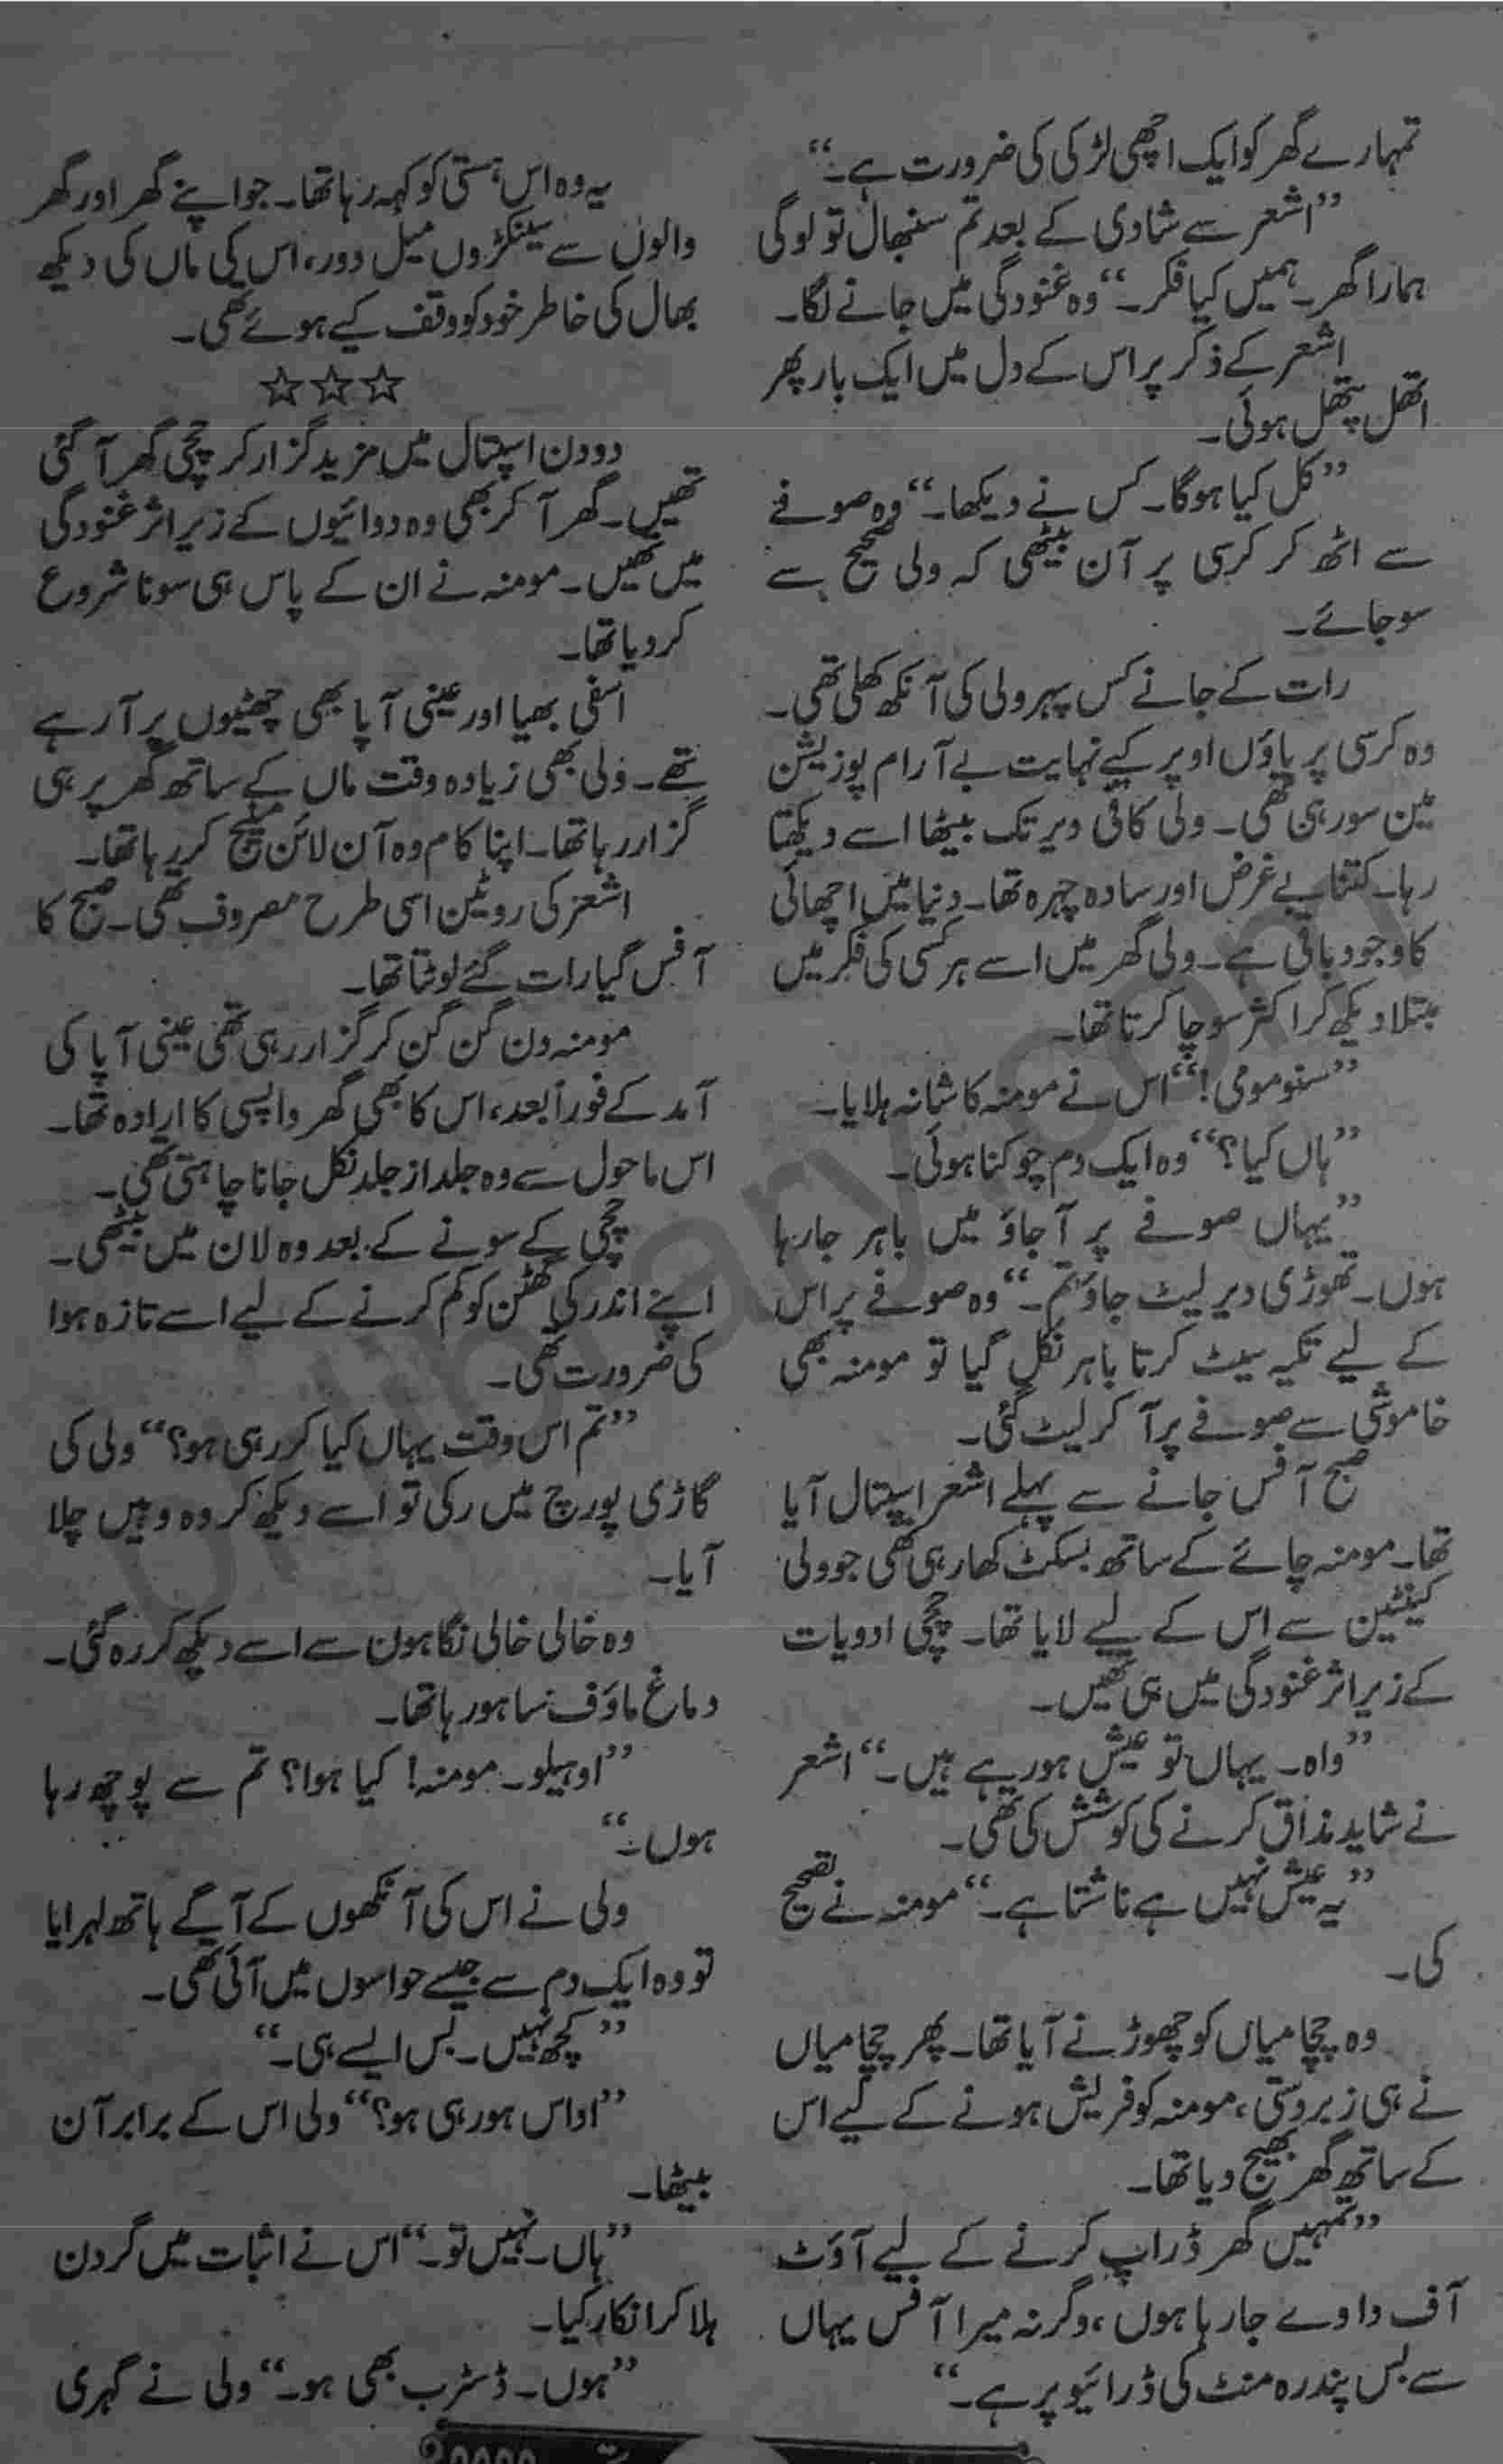 تمہارے گھر کو ایک اچھی لڑکی کی ضرورت ہے۔“
”اشعر سے شادی کے بعد تم سنبھال تو لو گی
ہمارا گھر۔ ہمیں کیا فکر۔“ وہ غنودگی میں جانے لگا۔
اشعر کے ذکر پر اس کے دل میں ایک بار پھر
اتھل پتھل ہوئی۔
”کل کیا ہوگا۔ کس نے دیکھا۔“ وہ صوفے
سے اٹھ کر کرسی پر آن بیٹھی کہ ولی صحیح سے
سو جائے۔
رات کے جانے کس پہر ولی کی آنکھ کھلی تھی۔
وہ کرسی پر پاؤں اوپر کیے نہایت بے آرام پوزیشن
میں سو رہی تھی۔ ولی کافی دیر تک بیٹھا اسے دیکھتا
رہا۔ کتنا بے غرض اور سادہ چہرہ تھا۔ دنیا میں اچھائی
کا وجود باقی ہے۔ ولی گھر میں اسے ہر کسی کی فکر میں
مبتلا دیکھ کر اکثر سوچا کرتا تھا۔
”سنو مومی!“ اس نے مومنہ کا شانہ ہلایا۔
”ہاں کیا؟“ وہ ایک دم چوکنا ہوئی۔
”یہاں صوفے پر آ جاؤ میں باہر جا رہا
ہوں۔ تھوڑی دیر لیٹ جاؤ تم۔“ وہ صوفے پر اس
کے لیے تکیہ سیٹ کرتا باہر نکل گیا تو مومنہ بھی
خاموشی سے صوفے پر آ کر لیٹ گئی۔
صبح آفس جانے سے پہلے اشعر اسپتال آیا
تھا۔ مومنہ چائے کے ساتھ بسکٹ کھا رہی تھی جو ولی
کینٹین سے اس کے لیے لایا تھا۔ چچی ادویات
کے زیر اثر غنودگی میں ہی تھیں۔
”واہ۔ یہاں تو عیش ہو رہے ہیں۔“ اشعر
نے شاید مذاق کرنے کی کوشش کی تھی۔
”یہ عیش نہیں ہے ناشتا ہے۔“ مومنہ نے تصحیح
کی۔
وہ چچا میاں کو چھوڑنے آیا تھا۔ پھر چچا میاں
نے ہی زبردستی، مومنہ کو فریش ہونے کے لیے اس
کے ساتھ گھر بھیج دیا تھا۔
”تمہیں گھر ڈراپ کرنے کے لیے آؤٹ
آف دا وے جا رہا ہوں، وگرنہ میرا آفس یہاں
سے بس پندرہ منٹ کی ڈرائیو پر ہے۔“
یہ وہ اس ہستی کو کہہ رہا تھا۔ جو اپنے گھر اور گھر
والوں سے سینکڑوں میل دور، اس کی ماں کی دیکھ
بھال کی خاطر خود کو وقف کیے ہوئے تھی۔
☆☆☆
دو دن اسپتال میں مزید گزار کر چچی گھر آ گئی
تھیں۔ گھر آ کر بھی وہ دوائیوں کے زیر اثر غنودگی
میں تھیں۔ مومنہ نے ان کے پاس ہی سونا شروع
کر دیا تھا۔
اسفی بھیا اور عینی آپا بھی چھٹیوں پر آ رہے
تھے۔ ولی بھی زیادہ وقت ماں کے ساتھ گھر پر ہی
گزار رہا تھا۔ اپنا کام وہ آن لائن مینج کر رہا تھا۔
اشعر کی روٹین اسی طرح مصروف تھی۔ صبح کا
آفس گیا رات گئے لوٹتا تھا۔
مومنہ دن گن گن کر گزار رہی تھی عینی آپا کی
آمد کے فوراً بعد، اس کا بھی گھر واپسی کا ارادہ تھا۔
اس ماحول سے وہ جلد از جلد نکل جانا چاہتی تھی۔
چچی کے سونے کے بعد وہ لان میں بیٹھی۔
اپنے اندر کی گھٹن کو کم کرنے کے لیے اسے تازہ ہوا
کی ضرورت تھی۔
”تم اس وقت یہاں کیا کر رہی ہو؟“ ولی کی
گاڑی پورچ میں رکی تو اسے دیکھ کر وہ وہیں چلا
آیا۔
وہ خالی خالی نگاہوں سے اسے دیکھ کر رہ گئی۔
دماغ ماؤف سا ہو رہا تھا۔
”او ہیلو۔ مومنہ! کیا ہوا؟ تم سے پوچھ رہا
ہوں۔“
ولی نے اس کی آنکھوں کے آگے ہاتھ لہرایا
تو وہ ایک دم سے جیسے حواسوں میں آئی تھی۔
”کچھ نہیں۔ بس ایسے ہی۔“
”اداس ہو رہی ہو؟“ ولی اس کے برابر آن
بیٹھا۔
”ہاں۔ نہیں تو۔“ اس نے اثبات میں گردن
ہلا کر انکار کیا۔
”ہوں۔ ڈسٹرب بھی ہو۔“ ولی نے گہری